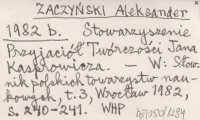 ZACZYŃSKI Aleksander
1982 b. Stowarzyszenie
Przyjaciół Twórczości Jana
Kasprowicza. — W: Słow-
nik polskich towarzystw nau-
kowych, t. 3, Wrocław 1982,
s. 240-241. WHP